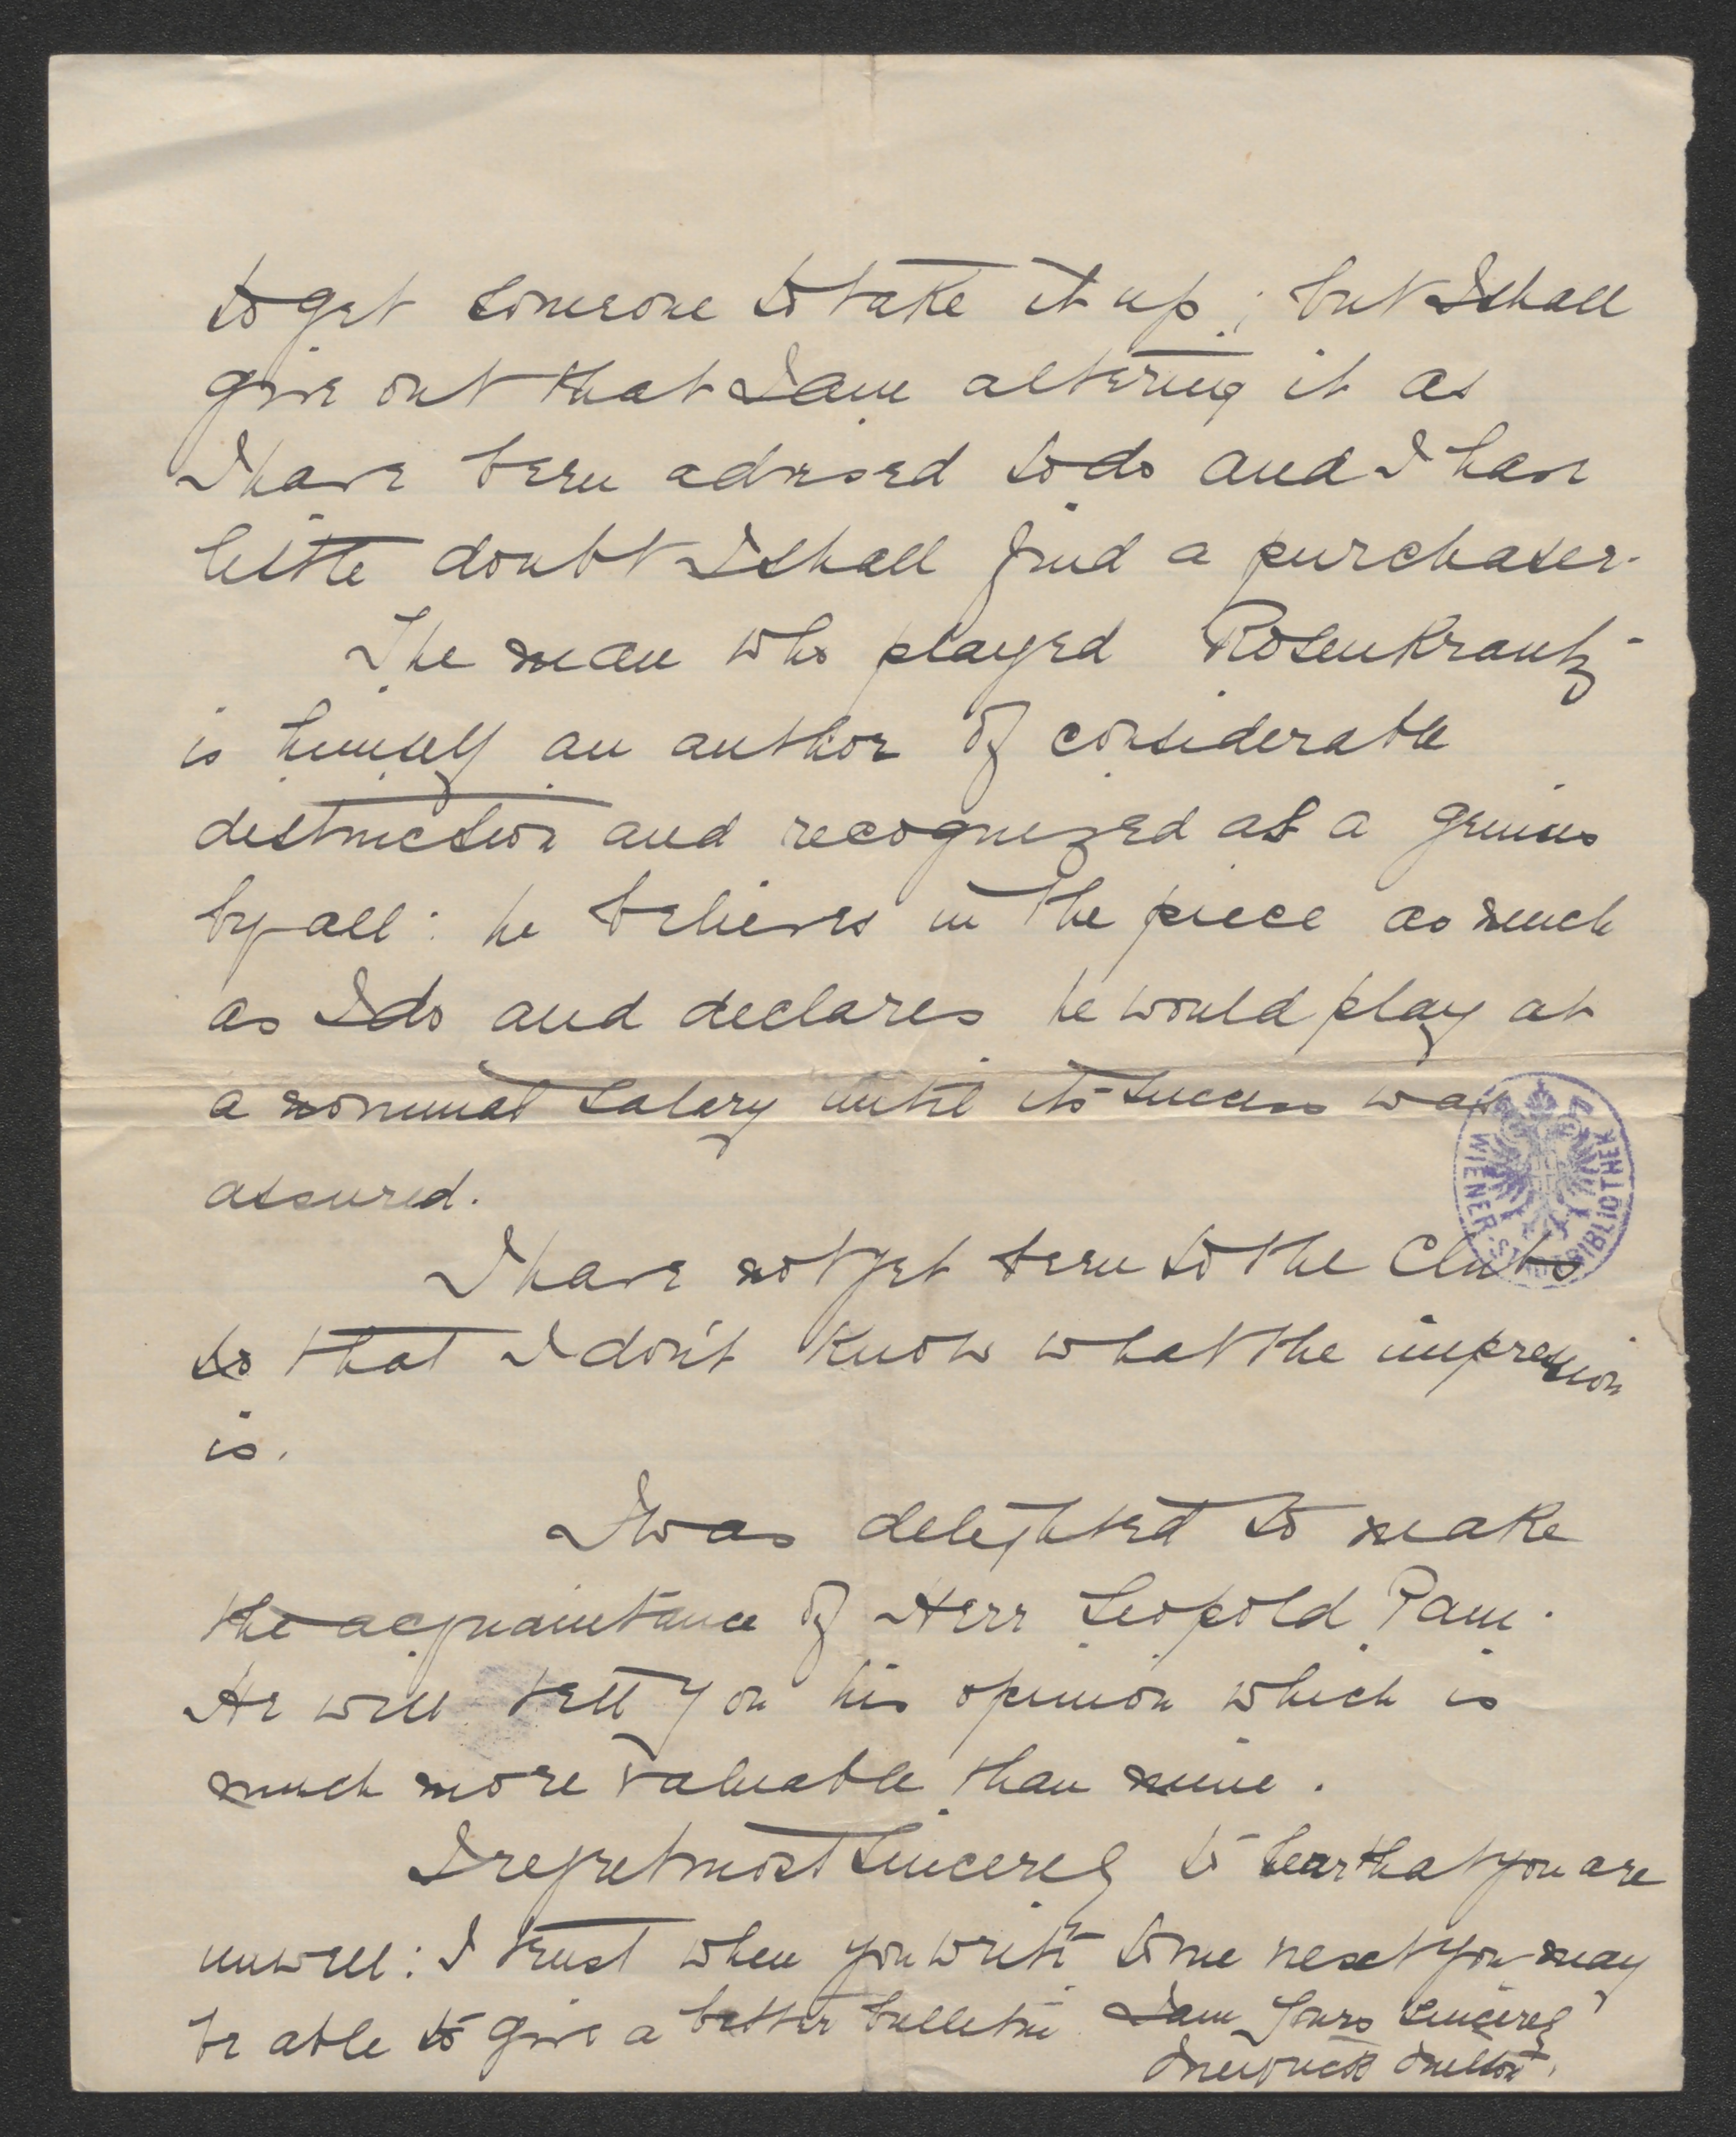 to get someone to take it up; but I shall
give out that I am altering it as
I have been advised to do and I have
little doubt I shall find a purchaser.
The man who played Rosenkrantz
is himself an author of considerable
distinction and recognized as a genius
by all: he believes in the piece as much
as I do and declares he would play at
a nominal salary until its success was
assured.
I have not yet been to the Clubs
so that I don't know what the impression
is.
I was delighted to make
the acquaintance of Herr Leopold Pam.
He will tell you his opinion which is
much more valuable than mine.
I regret most sincerely to hear that you are
unwell: I trust when you write to me next you may
be able to give a better bulletin. I am Yours sincerely
WIENER STADTBIBLIOTHEK